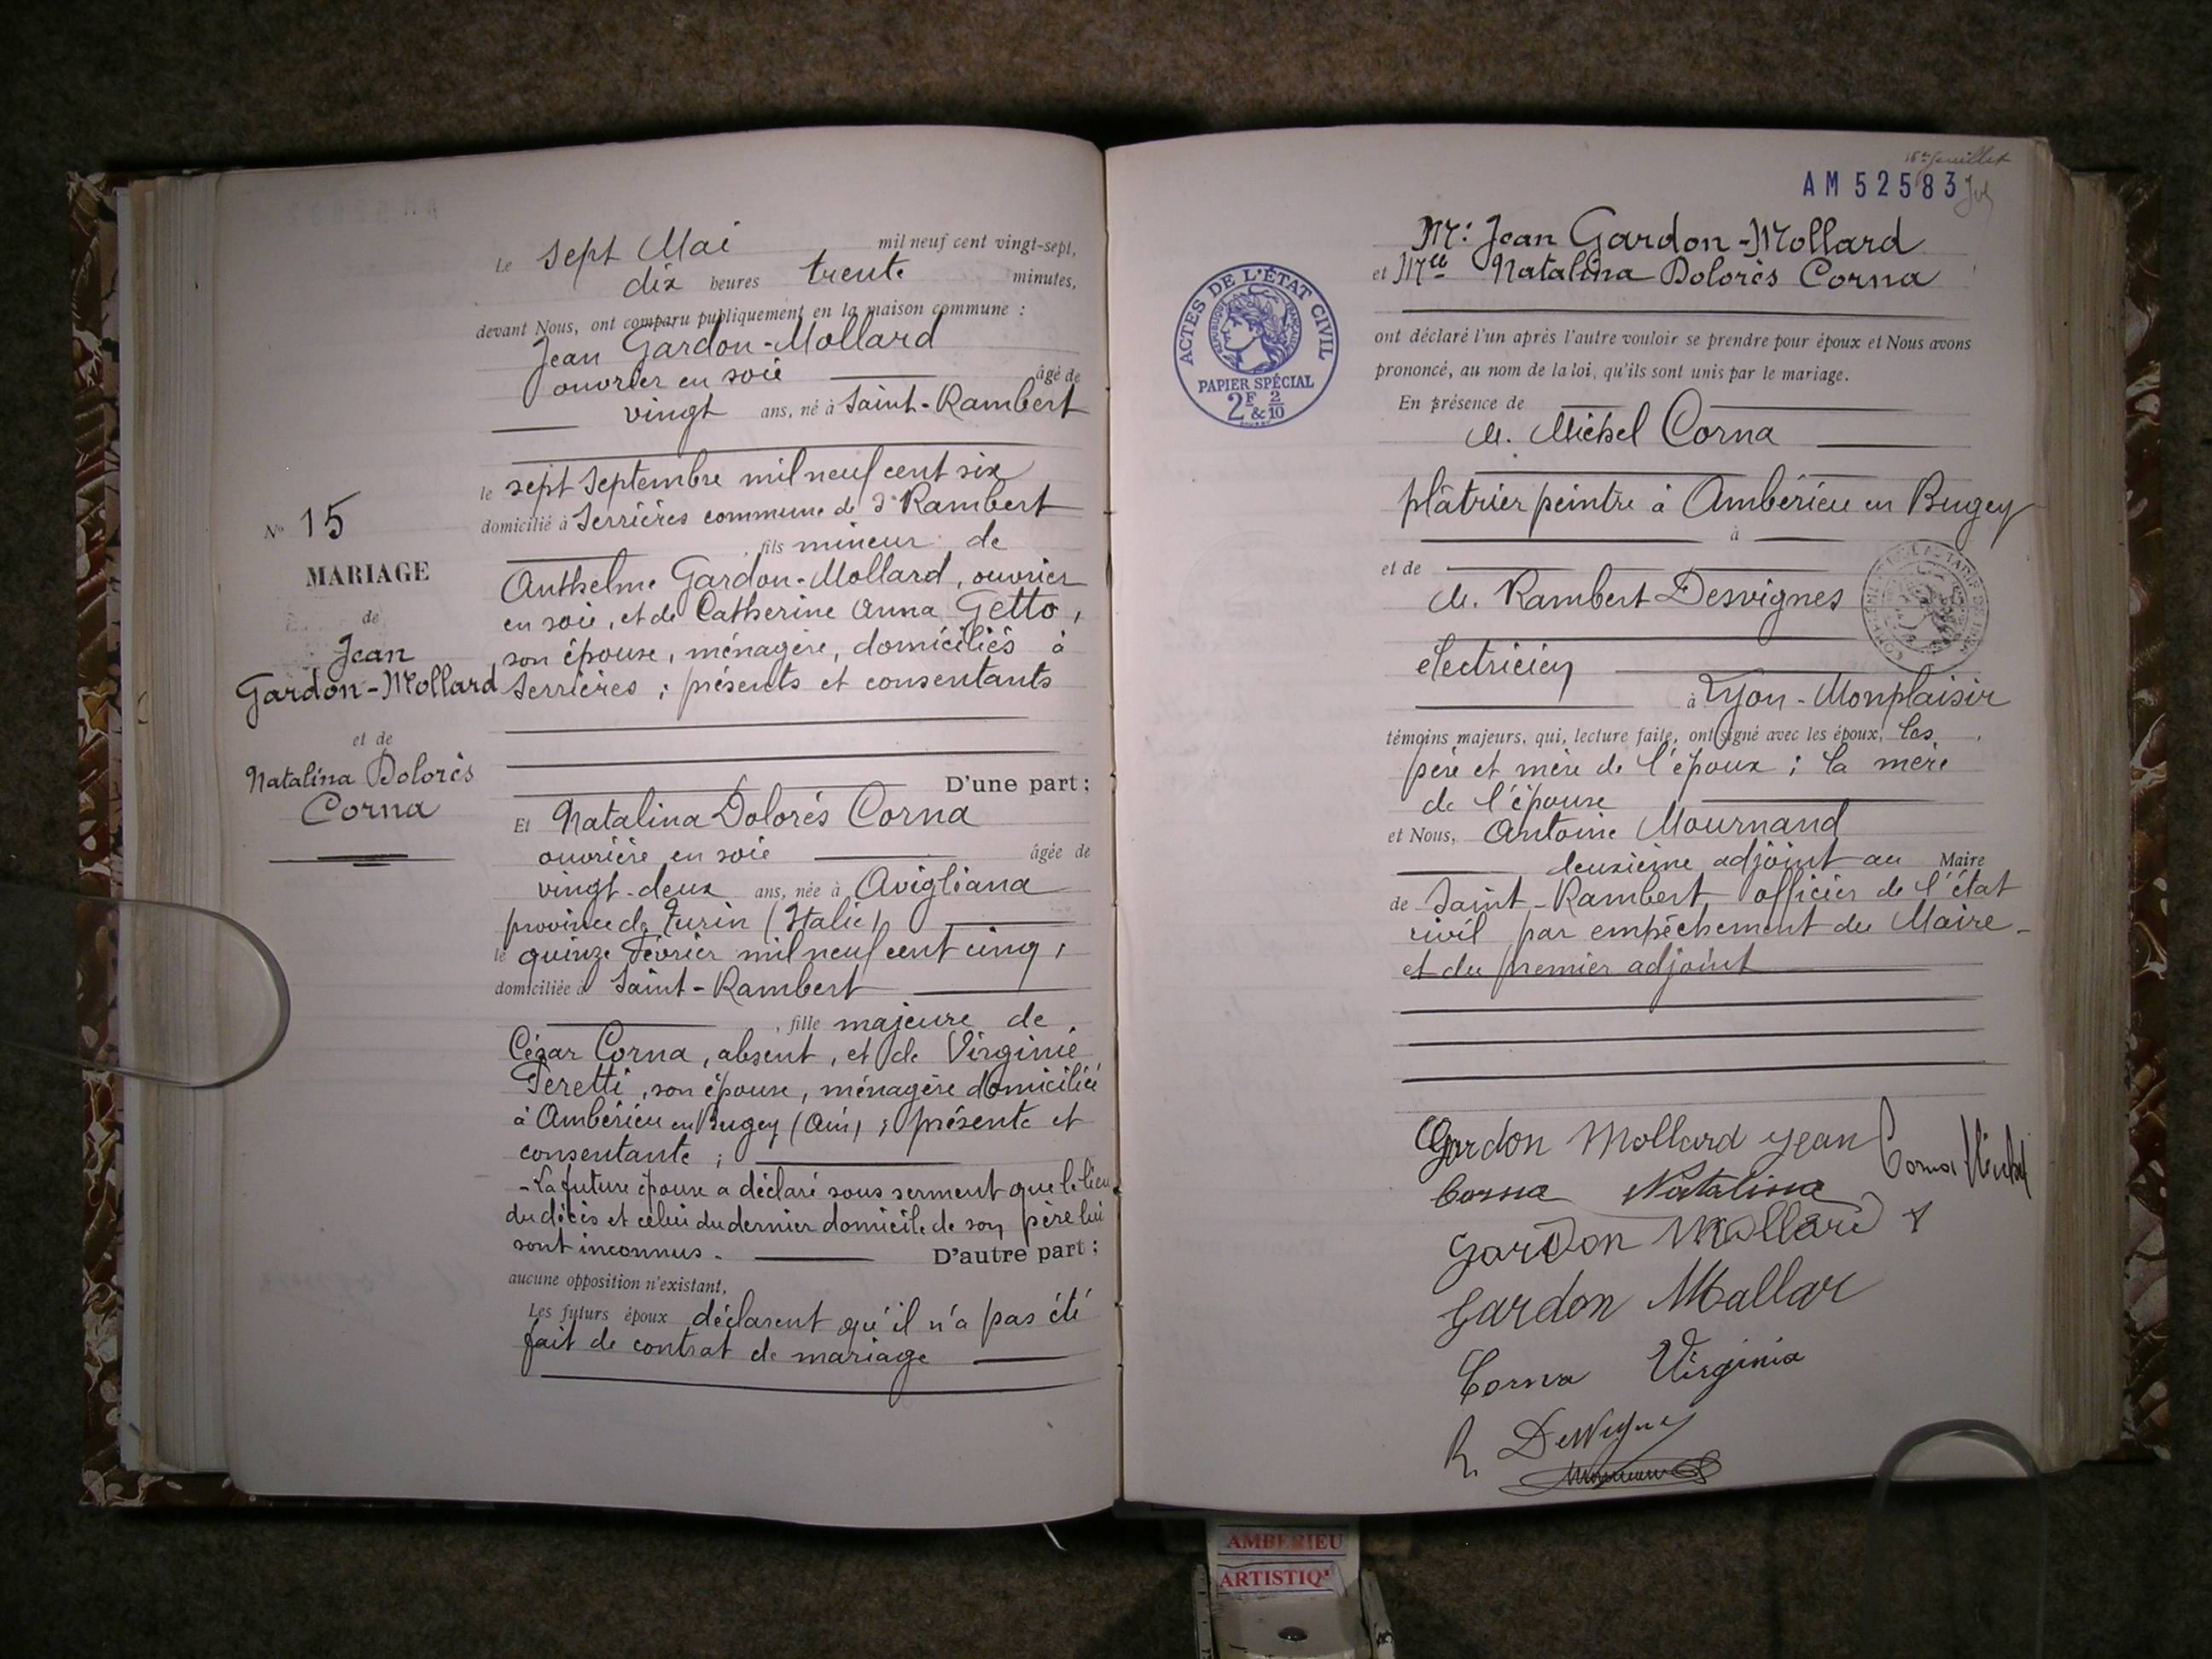 Le sept Mai mil neuf cent vingt-sept,
dix heures trente minutes,
devant Nous, ont comparu publiquement en la maison commune :
Jean Gardon-Mollard
ouvrier en soie âgé de
vingt ans, né à Saint-Rambert
le sept Septembre mil neuf cent six
domicilié à Serrières commune de St Rambert
, fils mineur de
Anthelme Gardon-Mollard, ouvrier
en soie, et de Catherine Anna Getto,
son épouse, ménagère, domiciliés à
Serrières ; présents et consentants
D'une part ;
Et Natalina Dolorès Corna
ouvrière en soie âgée de
vingt-deux ans, née à Avigliana
province de Turin (Italie)
le quinze Février mil neuf cent cinq,
domiciliée à Saint-Rambert
, fille majeure de
César Corna, absent, et de Virginie
Peretti, son épouse, ménagère domiciliée
à Ambérieu en Bugey (Ain) ; présente et
consentante ;
- La future épouse a déclaré sous serment que le lieu
du décès et celui du dernier domicile de son père lui
sont inconnus. D'autre part ;
aucune opposition n'existant,
Les futurs époux déclarent qu'il n'a pas été
fait de contrat de mariage
N° 15
MARIAGE
de
Jean
Gardon-Mollard
et de
Natalina Dolorès
Corna
16e feuillet
AM 52583
Mr. Jean Gardon-Mollard
et Mlle Natalina Dolorès Corna
ont déclaré l'un après l'autre vouloir se prendre pour époux et Nous avons
prononcé, au nom de la loi, qu'ils sont unis par le mariage.
En présence de
M. Michel Corna
plâtrier peintre à Ambérieu en Bugey
à
et de
M. Rambert Desvignes
électricien
à Lyon-Monplaisir
témoins majeurs, qui, lecture faite, ont signé avec les époux, les
père et mère de l'époux ; la mère
de l'épouse
et Nous, Antoine Mournand
deuxième adjoint au Maire
de Saint-Rambert officier de l'état
civil par empêchement du Maire
et du premier adjoint
Gardon Mollard Jean
Corna Michel
Corna Natalina
Gardon Mollard
Gardon Mallar
Corna Virginia
R. Desvignes
ACTES DE L'ÉTAT CIVIL
RÉPUBLIQUE FRANÇAISE
PAPIER SPÉCIAL
2F & 2/10
AMBERIEU
ARTISTIQ